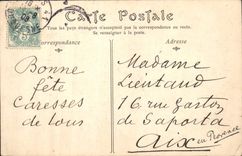 Carte Postale
Tous les pays étrangers n'acceptent pas la correspondance au recto.
Se renseigner à la poste.
Correspondance
Adresse
Bonne
fête
Caresses
de tous
Madame
Lieutaud
16 rue Gaston
de Saporta
Aix en Provence